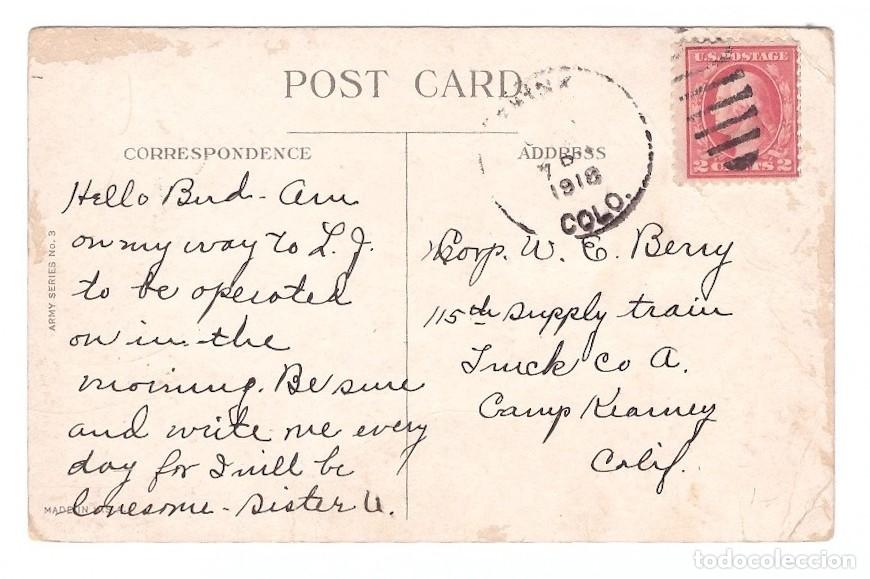 POST CARD
CORRESPONDENCE
Hello Bud - Am
on my way to L. J.
to be operated
on in the
morning. Be sure
and write me every
day for I will be
lonesome - Sister U.
ADDRESS
Corp. W. E. Berry
115th Supply train
Truck Co A.
Camp Kearney
Calif.
U.S. POSTAGE
2 CENTS 2
1918
COLO.
ARMY SERIES No. 3
MADE IN
todocoleccion